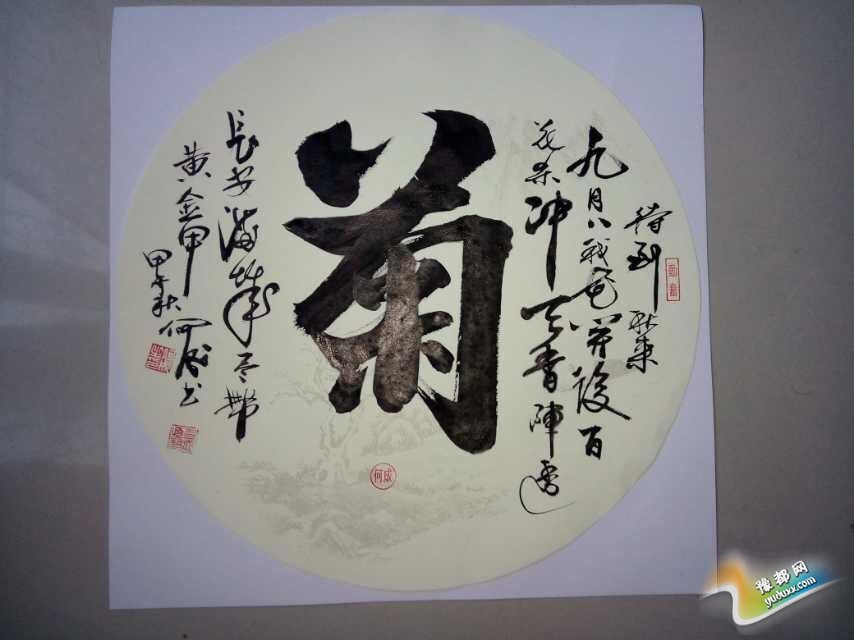 待到秋来
九月八我花开後百
花杀冲天香陣透
菊
长安满城尽带
黄金甲
甲午秋何成书
何成
豫都网
yuduxx.com